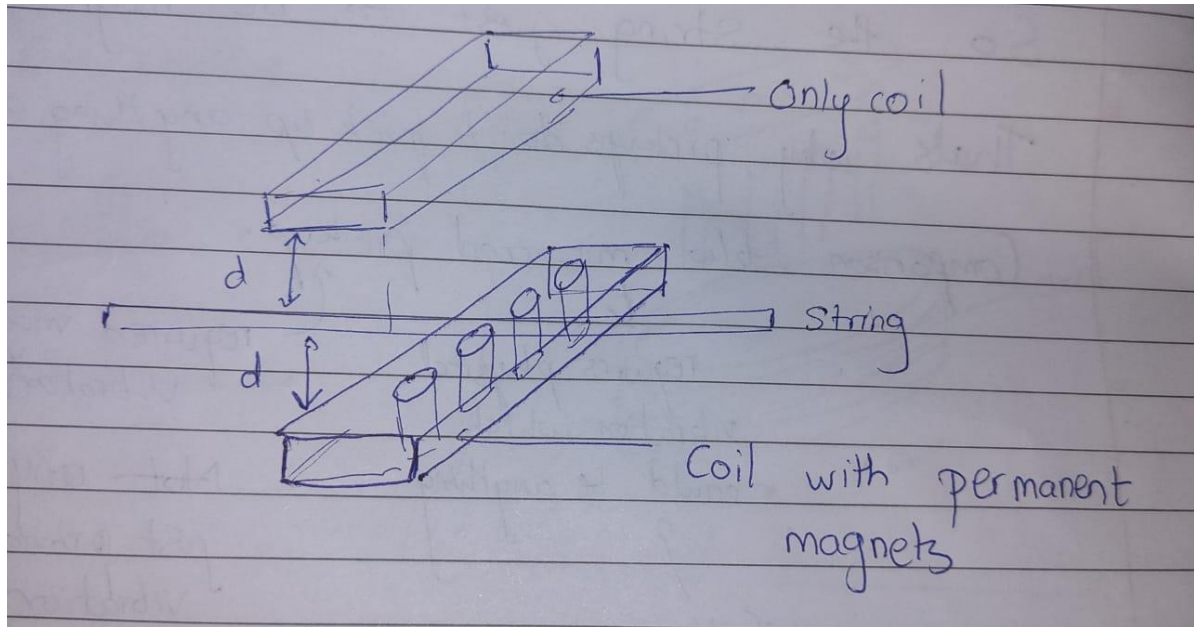 Only coil
d
String
d
Coil with permanent
magnets